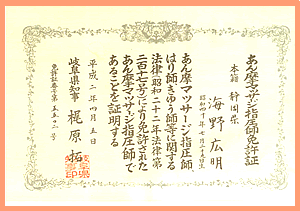 あん摩マッサージ指圧師免許証
本籍 静岡県
海野広明
昭和四十年七月二十五日生
あん摩マツサージ指圧師
はり師きゆう師等に関する
法律(昭和二十二年法律第
二百十七号)により免許された
あん摩マツサージ指圧師で
あることを証明する
平成二年四月五日
岐阜県知事 梶原拓